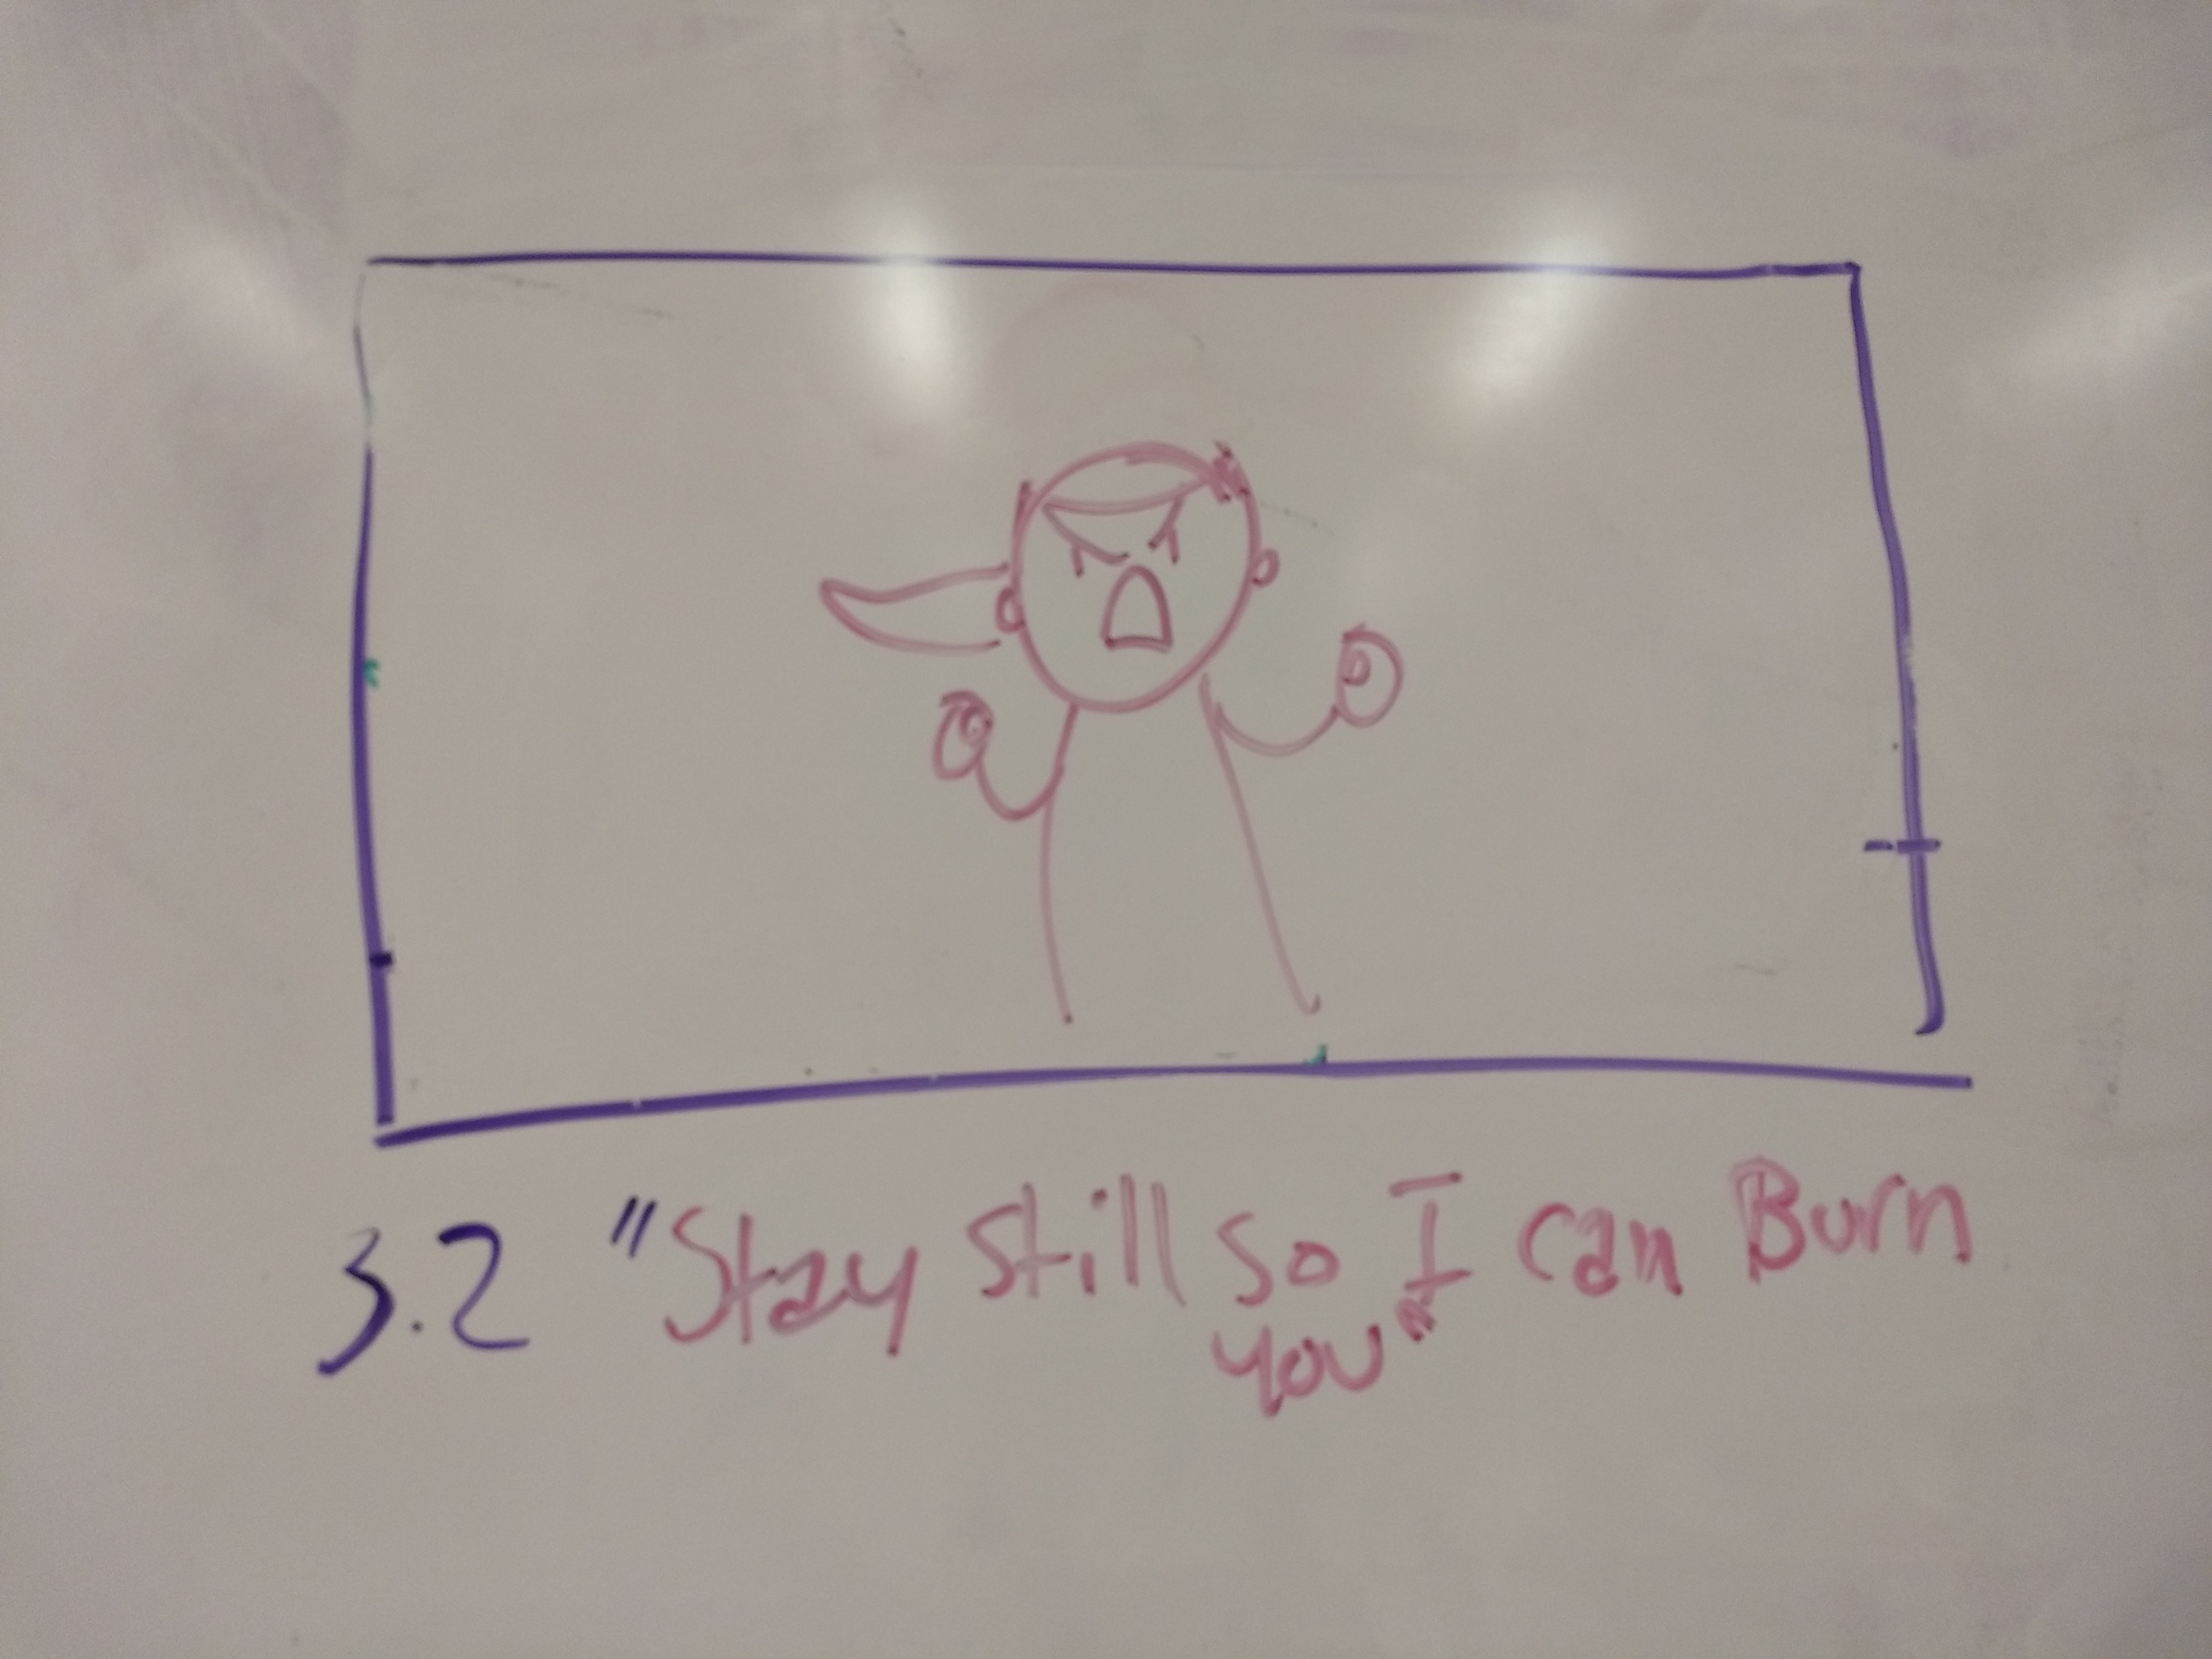 3.2 "Stay Still so I can Burn
you"